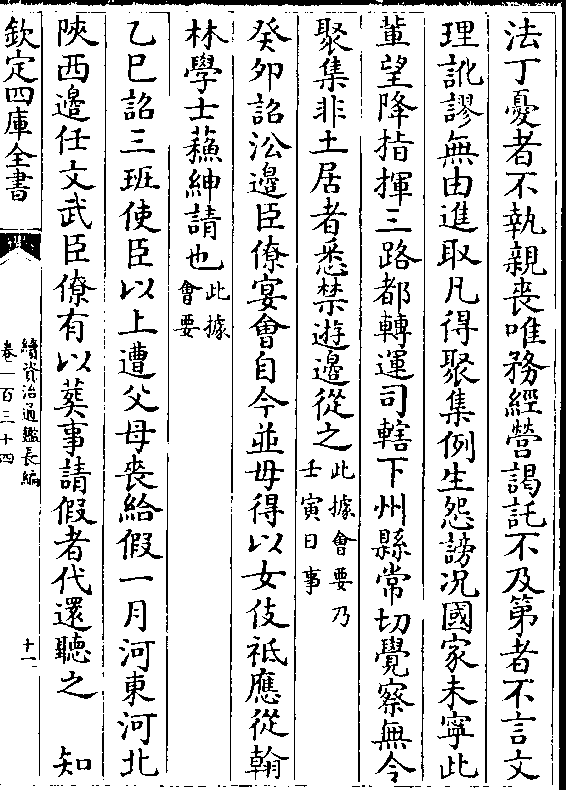 法丁憂者不執親喪唯務經營謁託不及第者不言文
理訛謬無由進取凡得聚集例生怨謗况國家未寧此
軰望降指揮三路都轉運司轄下州縣常切覺察無令
聚集非土居者悉禁遊邉從之此據會要乃
壬寅日事
癸卯詔沿邉臣僚宴會自今並毋得以女伎祗應從翰
林學士蘓紳請也此據
會要
乙巳詔三班使臣以上遭父母喪給假一月河東河北
陜西邉任文武臣僚有以葬事請假者代還聽之　知
欽定四庫全書
續資治通鑑長編
卷一百三十四
十一